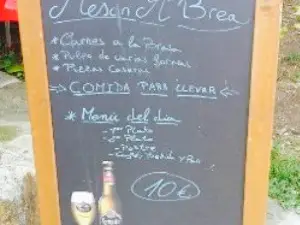 Mesón A Brea
* Carnes a la Brasa
* Pulpo de varias formas
* Pizzas Caseras
COMIDA PARA LLEVAR
* Menú del día
- 1er Plato
- 2º Plato
- Postre
- Café, Bebida y Pan
10€